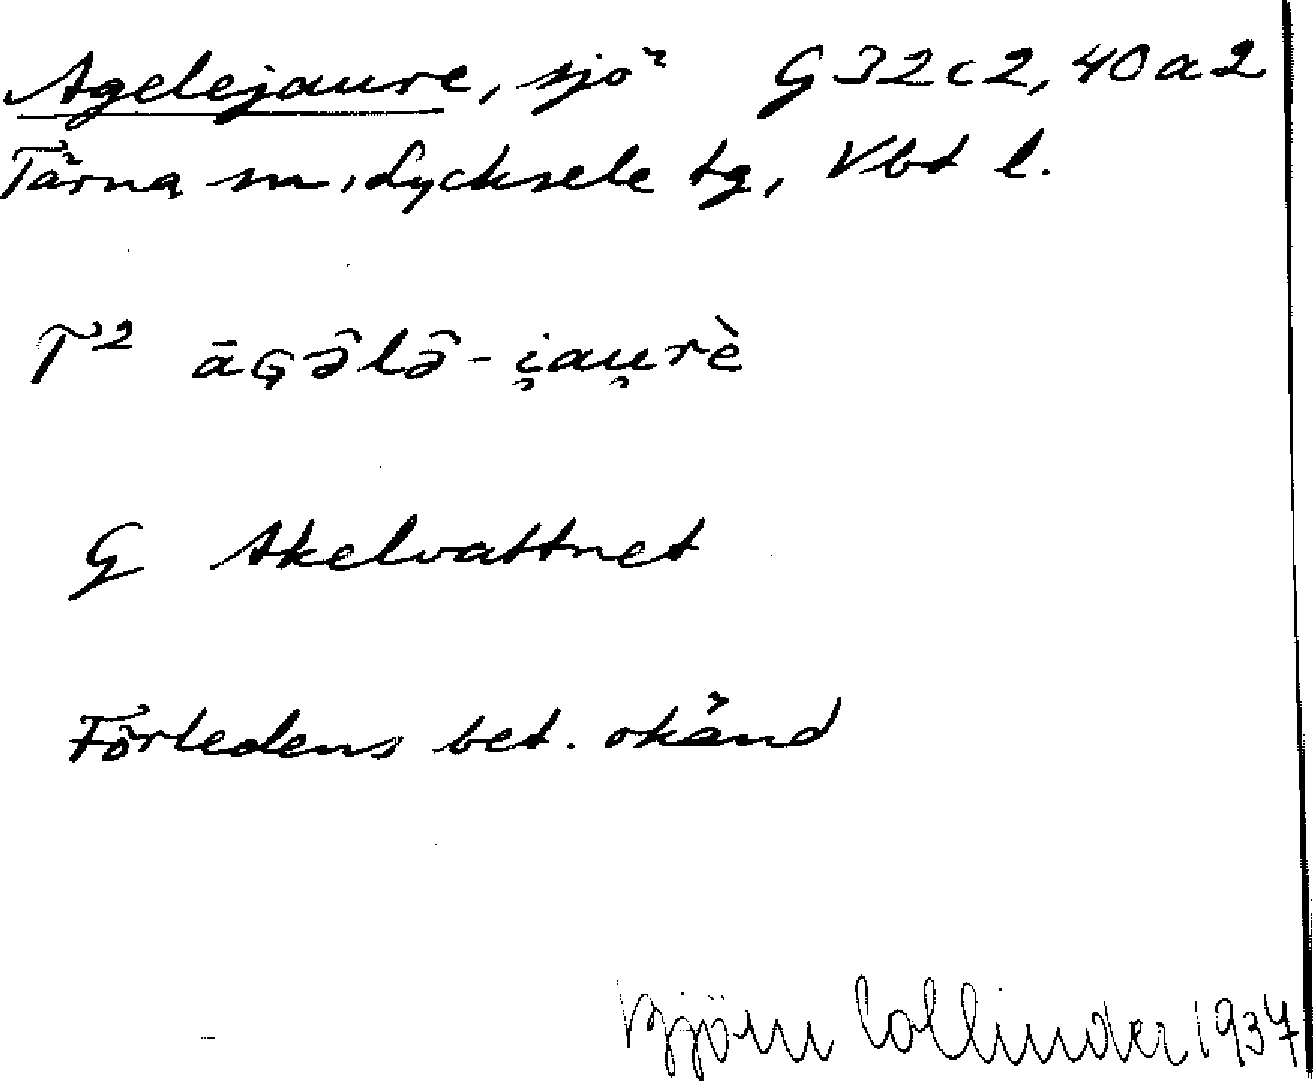 Agelejaure, sjö G 32c2, 40a2
Tärna sn, Lycksele tg, Vbt l.
T² āɢə̑lə̑-i̯au̯rè
G Akelvattnet
Förledens bet. okänd
Björn Collinder 1937